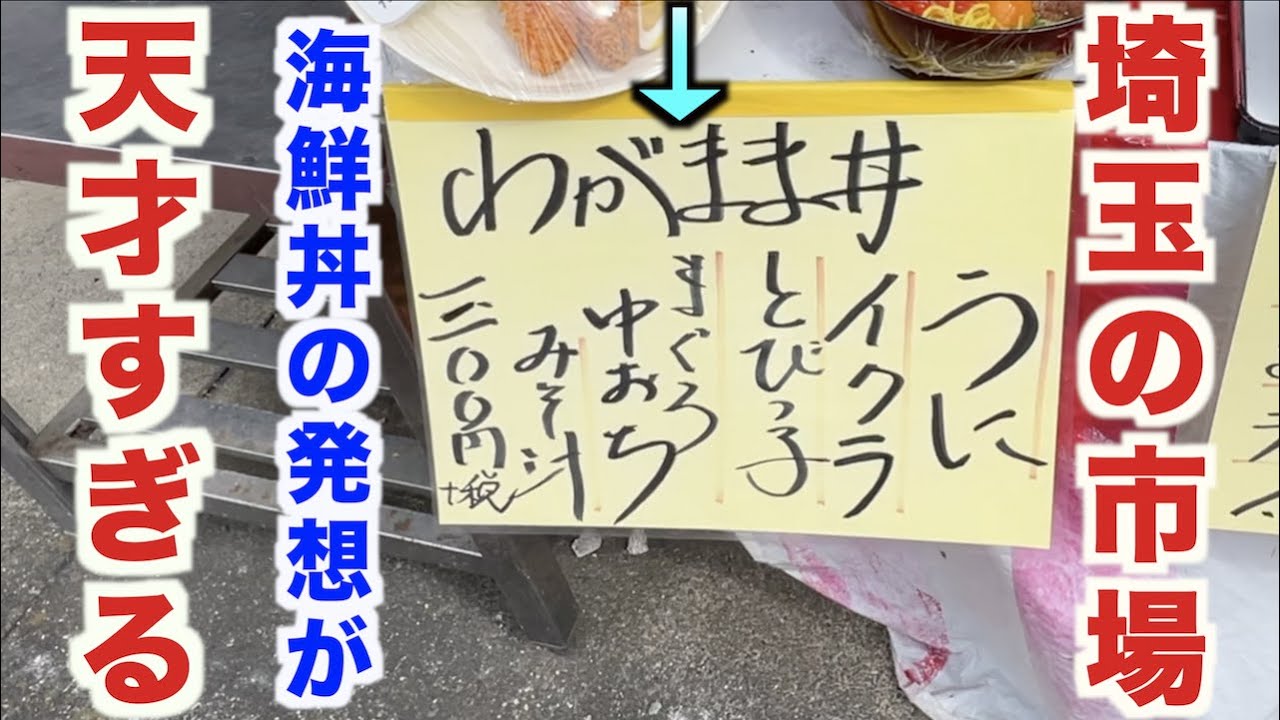 埼玉の市場
海鮮丼の発想が
天才すぎる
わがまま丼
うに
イクラ
とびっ子
まぐろ
中おち
みそ汁
三一〇〇円
+税